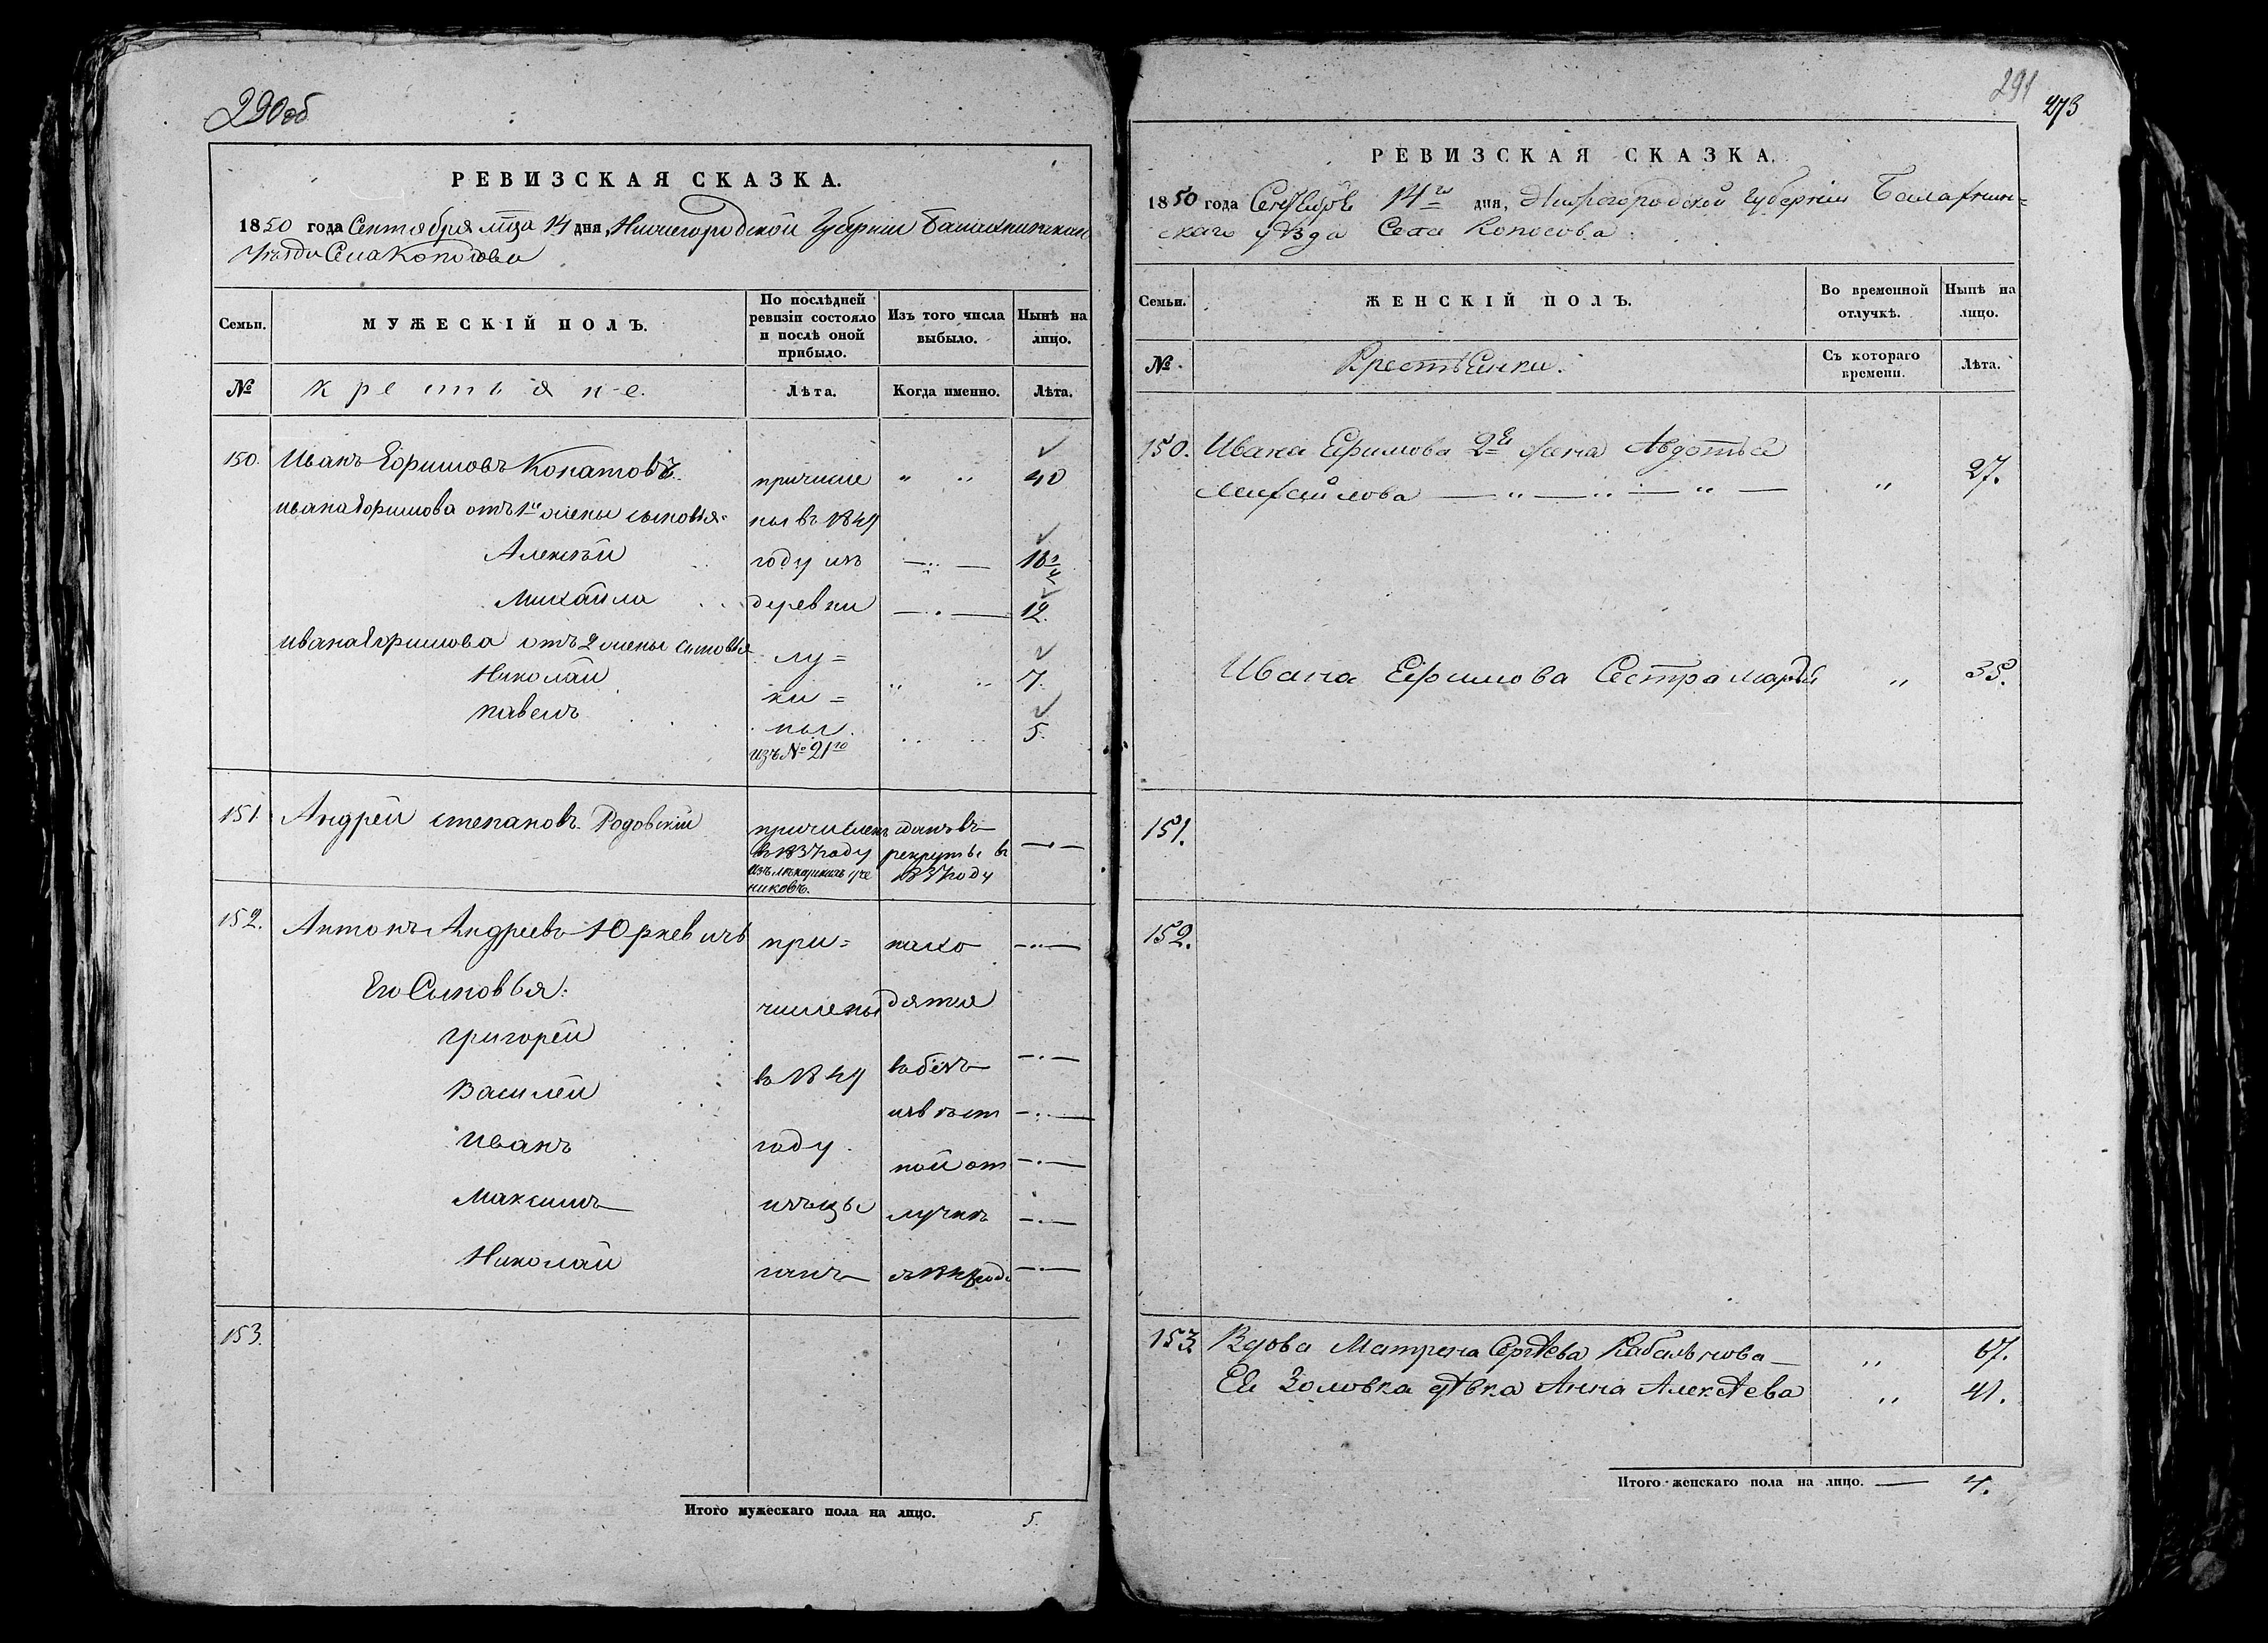 290об
РЕВИЗСКАЯ СКАЗКА.
1850 года Сентября мца 14 дня, Нижегородской Губернии Балахнинскаго
Уезда Села Копосова
Семьи.
МУЖЕСКІЙ ПОЛЪ.
По послѣдней ревизіи состояло и послѣ оной прибыло.
Изъ того числа выбыло.
Нынѣ на лицо.
№
крестьяне.
Лѣта.
Когда именно.
Лѣта.
150. Иванъ Ефимовъ причисле " " 40
ивана Ефимова отъ 1й жены сыновья: ны въ 1849
Алексѣй году изъ 18
Михайла деревни 12.
ивана Ефимова отъ 2 жены сыновья лу=
Николай ки= " " 7.
павелъ ны. 5.
изъ № 21го
151. Андрей степановъ Родовскій причисленъ зданъ въ
въ 1837 году рекруты въ
1837 году
никовъ.
152. Антонъ Андреевъ Юркевичъ при= нахо
Его Сыновья: числены дятся
григорей
Василей въ 1849 вобезъ
извѣст
Иванъ году. ной от
Максимъ изъ цы лучкѣ
Николай ганъ
153.
Итого мужескаго пола на лицо. 5.
291
273
РЕВИЗСКАЯ СКАЗКА.
1850 года Сентября 14го дня, Нижегородской губерніи Балахнин=
скаго уѣзда Села Копосова.
Семьи.
ЖЕНСКІЙ ПОЛЪ.
Во временной отлучкѣ.
Нынѣ на лицо.
№
Крестьянки.
Съ котораго времени.
Лѣта.
150. Ивана Ефимова 2я жена Авдотья
Михайлова " 27.
Ивана Ефимова Сестра марья " 35.
151.
152.
153. Вдова Матрена Сергѣева " 67.
Ея Золовка дѣвка Анна Алексѣева " 41.
Итого женскаго пола на лицо. 4.